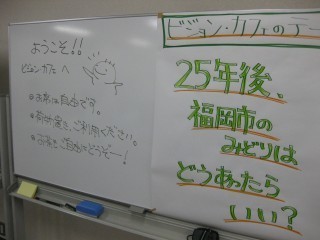 ようこそ!!
ビジョン・カフェへ
※お席は自由です。
ご利用ください。
※お茶をご自由にどうぞー!
ビジョン・カフェのテー
25年後、
福岡市の
みどりは
どうあったら
いい?